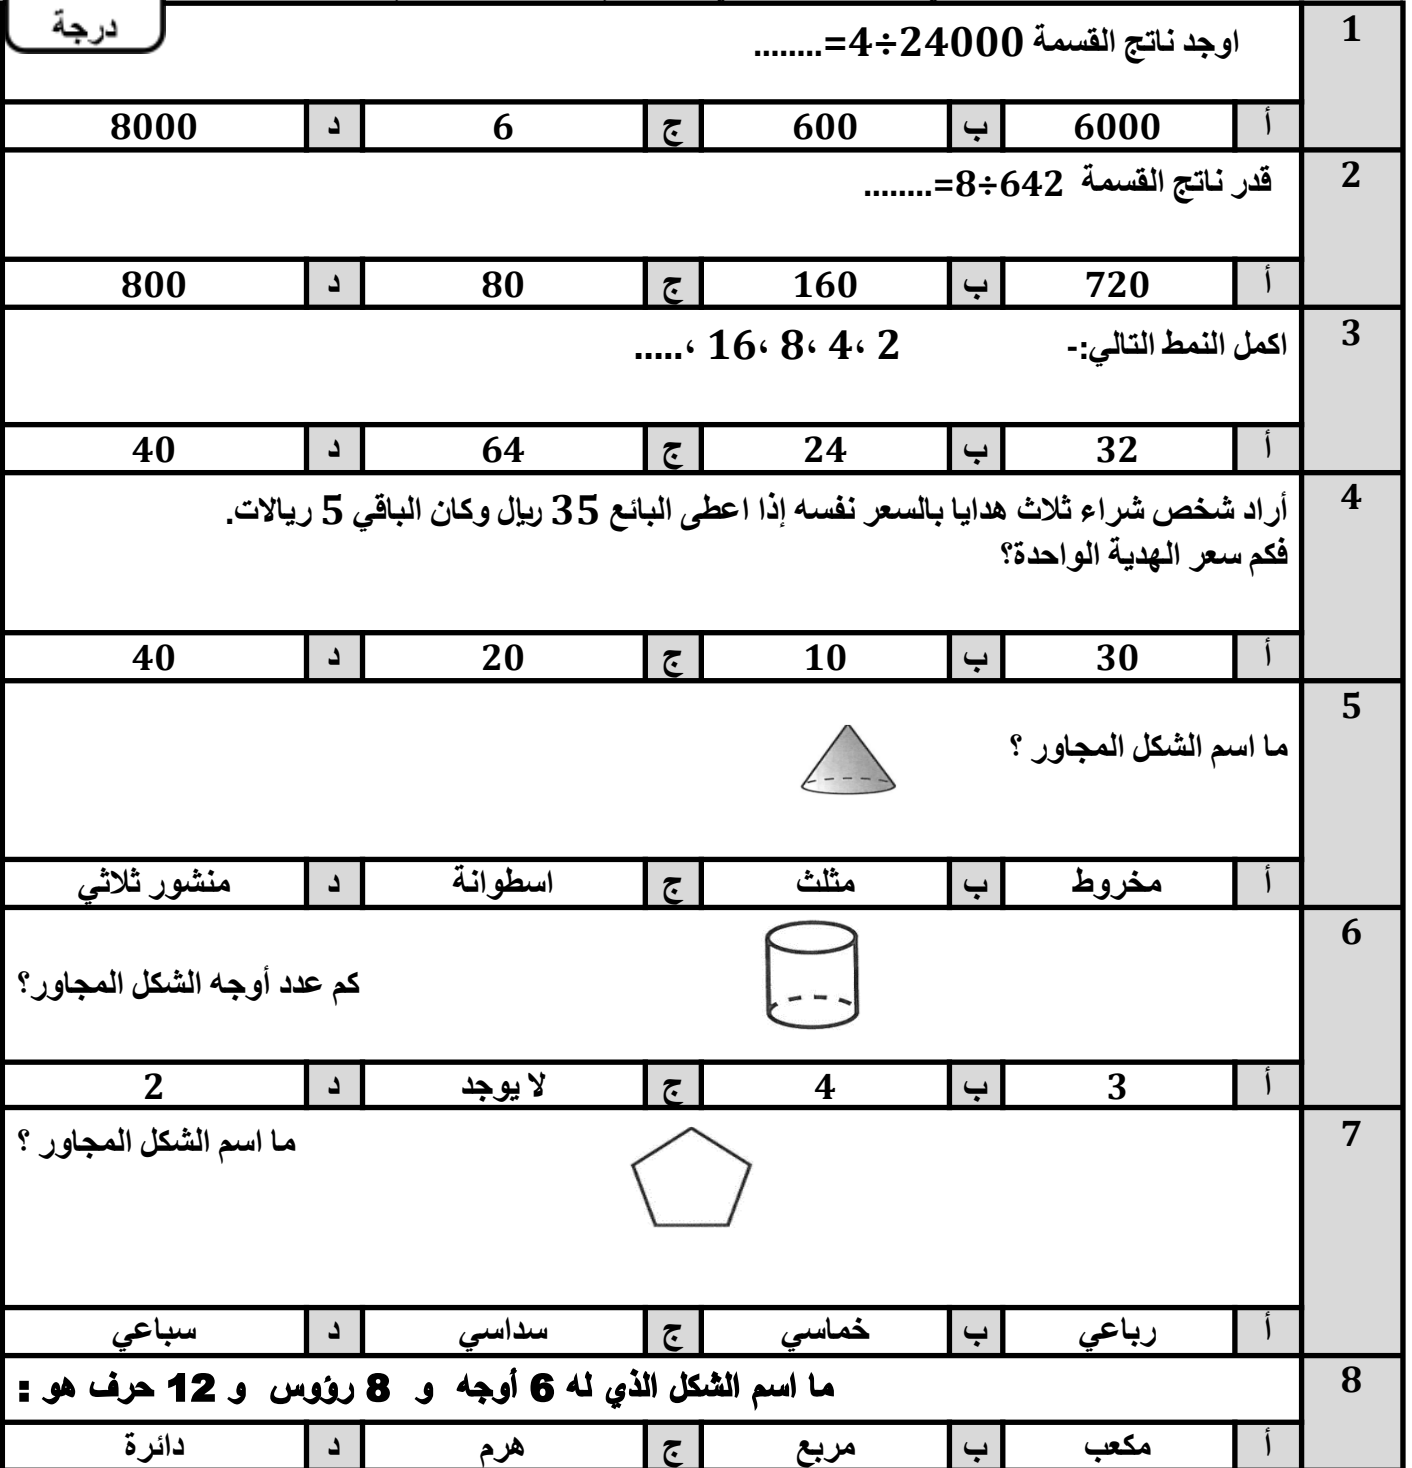 درجة
1
اوجد ناتج القسمة 24000÷4=........
أ 6000 ب 600 ج 6 د 8000
2
قدر ناتج القسمة 642÷8=........
أ 720 ب 160 ج 80 د 800
3
اكمل النمط التالي:- 2 ،4 ،8 ،16 ،.....
أ 32 ب 24 ج 64 د 40
4
أراد شخص شراء ثلاث هدايا بالسعر نفسه إذا اعطى البائع 35 ريال وكان الباقي 5 ريالات.
فكم سعر الهدية الواحدة؟
أ 30 ب 10 ج 20 د 40
5
ما اسم الشكل المجاور ؟
أ مخروط ب مثلث ج اسطوانة د منشور ثلاثي
6
كم عدد أوجه الشكل المجاور؟
أ 3 ب 4 ج لا يوجد د 2
7
ما اسم الشكل المجاور ؟
أ رباعي ب خماسي ج سداسي د سباعي
8
ما اسم الشكل الذي له 6 أوجه و 8 رؤوس و 12 حرف هو :
أ مكعب ب مربع ج هرم د دائرة